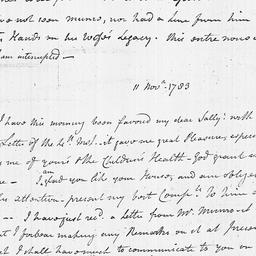 not soon

on his Wife's Legacy. this entre nous
am interrupted —
11 Novr. 1783
I have this morning been favored my dear Sally: with
Letter of the 4th Inst. it gave me great Pleasure, especi
me of yours & the Children's Health — God grant
I am glad you like your House, and am oblig
his attention — present my best Compts. to him
— I have just recd. a Letter from Mr.
I forbear making any Remarks on it at prese
I shall have much to communicate to you on